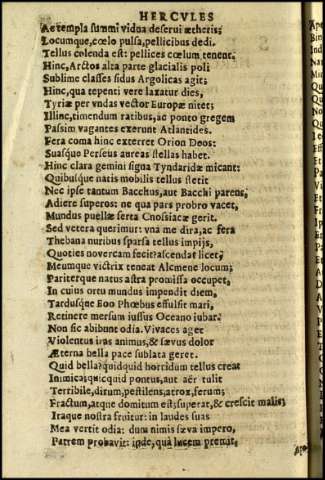 HERCVLES
Ac templa summi vidua deserui ætheris;
Locumque, cœlo pulsa, pellicibus dedi.
Tellus colenda est: pellices cœlum tenent.
Hinc, Arctos alta parte glacialis poli
Sublime classes sidus Argolicas agit;
Hinc, qua tepenti vere laxatur dies,
Tyriæ per vndas vector Europæ nitet;
Illinc, timendum ratibus, ac ponto gregem
Passim vagantes exerunt Atlantides.
Fera coma hinc exterret Orion Deos:
Suasque Perseus aureas stellas habet.
Hinc clara gemini signa Tyndaridæ micant:
Quibusque natis mobilis tellus stetit
Nec ipse tantum Bacchus, aut Bacchi parens,
Adiere superos: ne qua pars probro vacet,
Mundus puellæ serta Cnosiacæ gerit.
Sed vetera querimur: vna me dira, ac fera
Thebana nuribus sparsa tellus impijs,
Quoties novercam fecit? ascendat licet,
Meumque victrix teneat Alcmene locum;
Pariterque natus astra promissa occupet,
In cuius ortu mundus impendit diem,
Tardusque Eoo Phœbus effulsit mari,
Retinere mersum iussus Oceano iubar.
Non sic abibunt odia. Vivaces aget
Violentus iras animus, & sævus dolor
Æterna bella pace sublata geret.
Quid bella? quidquid horridum tellus creat
Inimica; quicquid pontus, aut aër tulit
Terribile, dirum, pestilens, atrox, ferum;
Fractum, atque domitum est; superat, & crescit malis;
Iraque nostra fruitur: in laudes suas
Mea vertit odia: dum nimis sæva impero,
Patrem probavit: inde, qua lucem premit,